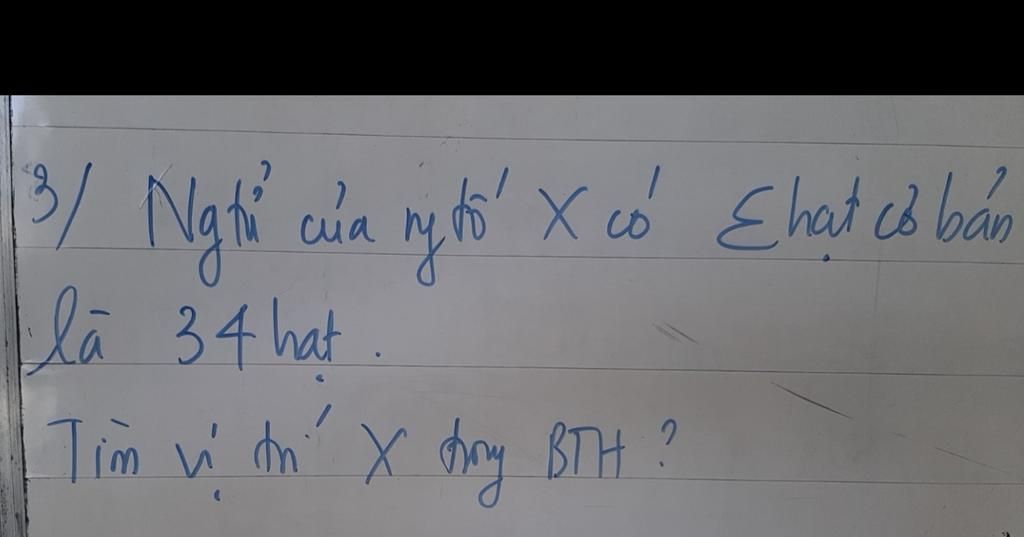 3/ Ngtử của ngtố X có Σ hạt cơ bản
là 34 hạt.
Tìm vị trí X trong BTH?